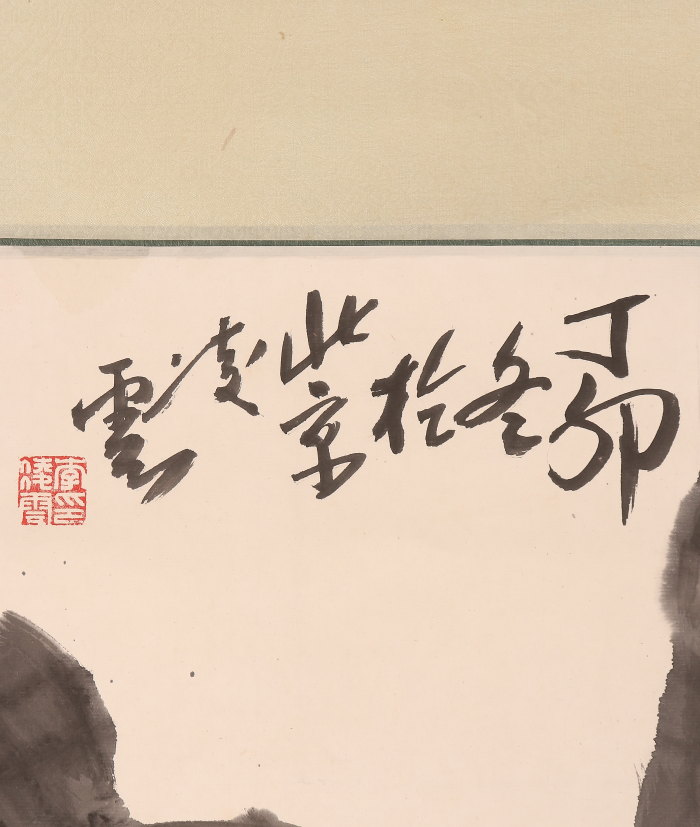 丁卯冬於北京凌雲
李印凌雲